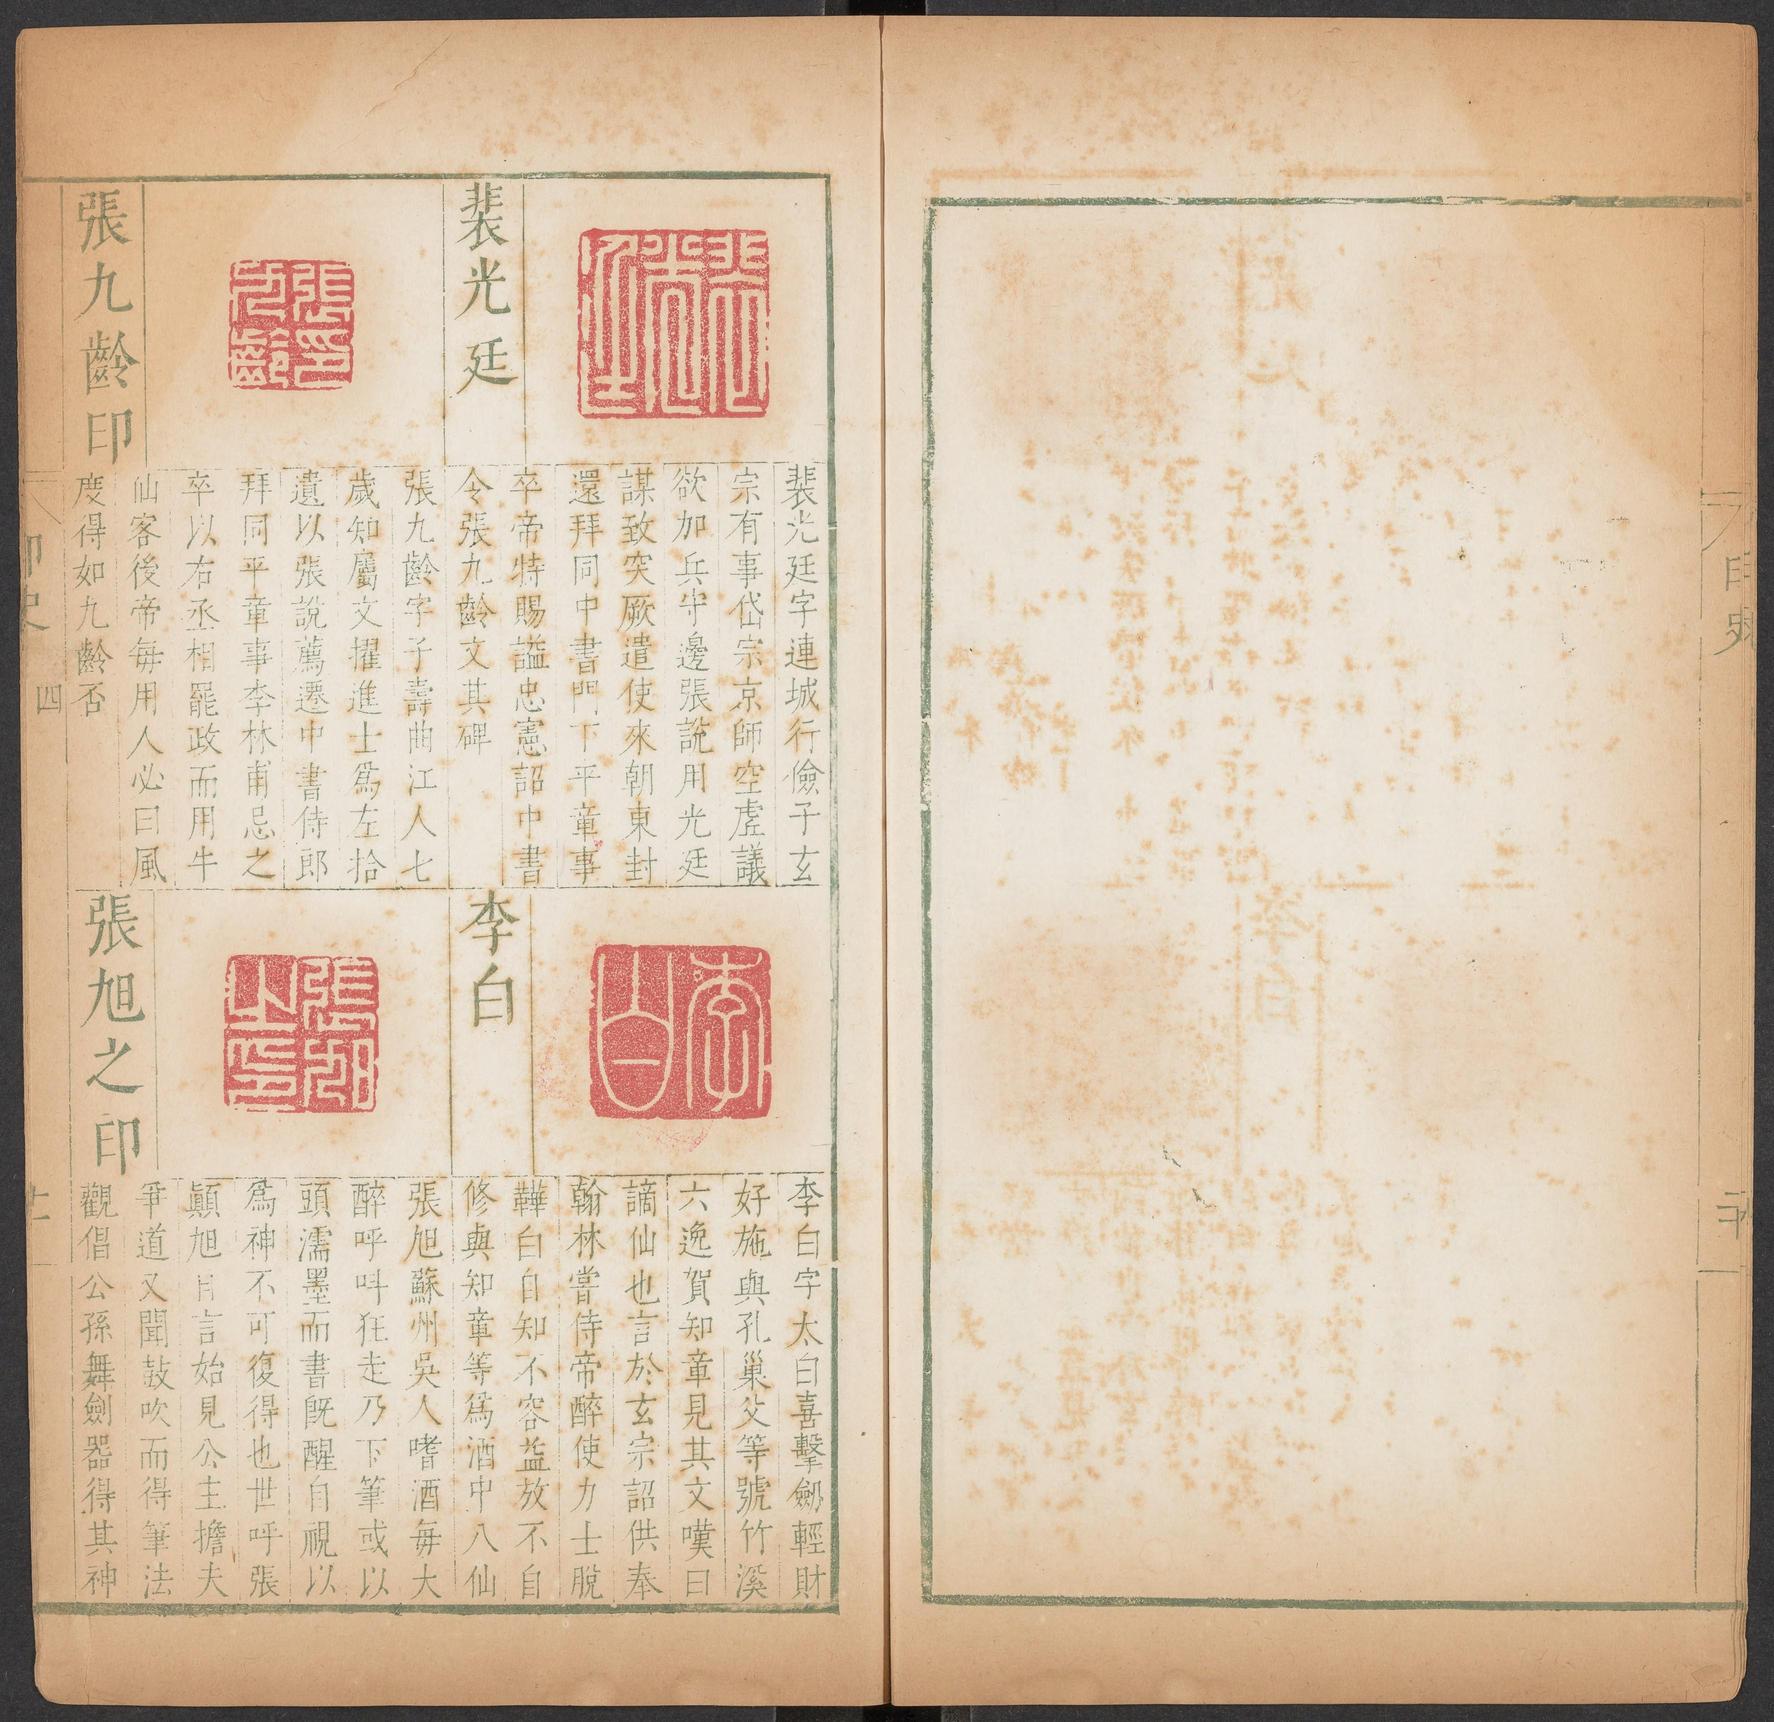 裴光廷
裴光廷字連城行儉子玄
宗有事岱宗京師空虛議
欲加兵守邊張說用光廷
謀致突厥遣使來朝東封
還拜同中書門下平章事
卒帝特賜謚忠憲詔中書
令張九齡文其碑
張九齡印
張九齡字子壽曲江人七
歲知屬文擢進士爲左拾
遺以張說薦遷中書侍郎
拜同平章事李林甫忌之
卒以右丞相罷政而用牛
仙客後帝每用人必曰風
度得如九齡否
李白
李白字太白喜擊劒輕財
好施與孔巢父等號竹溪
六逸賀知章見其文嘆曰
謫仙也言於玄宗詔供奉
翰林嘗侍帝醉使力士脫
鞾白自知不容益放不自
修與知章等爲酒中八仙
張旭之印
張旭蘇州吳人嗜酒每大
醉呼叫狂走乃下筆或以
頭濡墨而書旣醒自視以
爲神不可復得也世呼張
顚旭自言始見公主擔夫
爭道又聞鼓吹而得筆法
觀倡公孫舞劍器得其神
印史
四